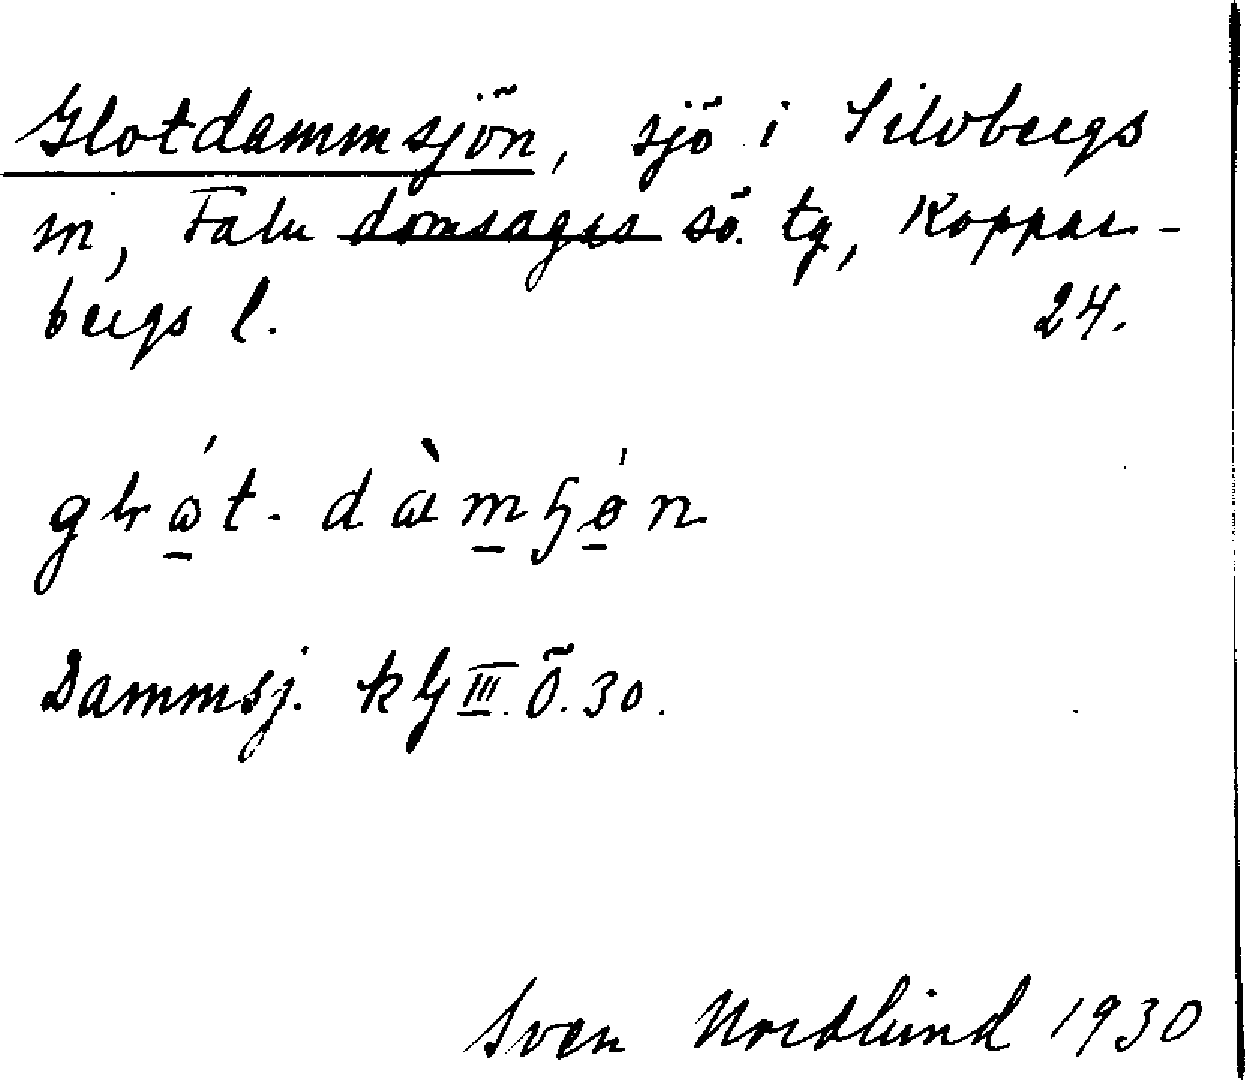 Glotdammsjön, sjö i Silvbergs
sn, Falu domsagas sö. tg, Koppar-
bergs l. 24.
Dammsj. k III. Ö. 30.
Sven Nordlund 1930